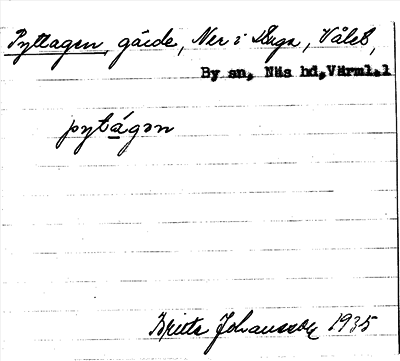 Pyttagen, gärde, Ner i Haga, Våleb,
By sn, Näs hd, Värml.l
pytágən
Britta Johansson 1935